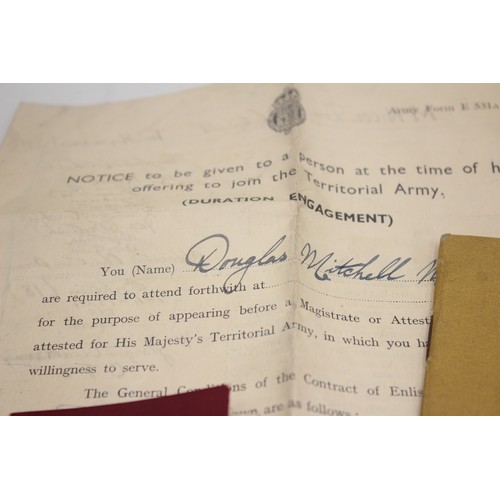 Army Form E 531
NOTICE to be given to a person at the time of h
offering to join the Territorial Army.
(DURATION ENGAGEMENT)
You (Name) Douglas Mitchell M
are required to attend forthwith at
for the purpose of appearing before a Magistrate or Attesti
attested for His Majesty's Territorial Army, in which you ha
willingness to serve.
The General Conditions of the Contract of Enlis
own are as follows: